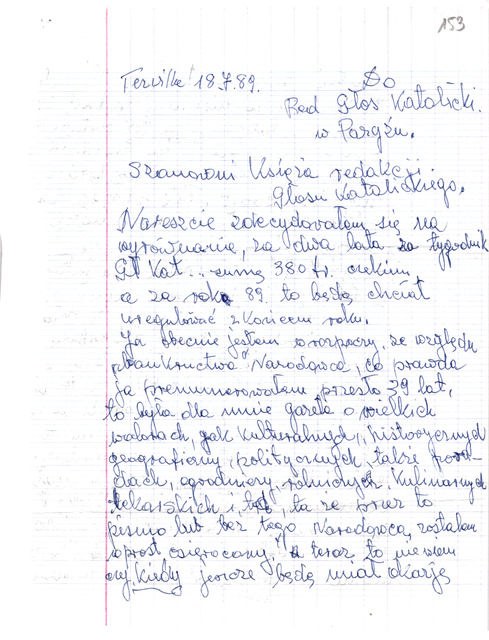 153
Terville 18.7.89. Do
Red Głos Katolicki.
w Paryżu.
Szanowni Księża redakcji
Głosu Katolickiego.
Nareszcie zdecydowałem się na
wyrównanie, za dwa lata za tygodnik
Gł Kat... sumę 380 fr. czekim
a za rok 89. to będę chciał
uregulować z końcem roku.
Ja obecnie jestem w rozpaczy, ze względu
bankructwa Narodowca, co prawda
ja prenumerowałem przeszło 39 lat,
to była dla mnie gazeta o wielkich
walorach, jak kulturalnych, historycznych
geograficzny, politycznych, także
ogrodniczy, rolniczych, kulinarnych
lekarskich i td, ta że przez to
pismo lub bez tego Narodowca, zostałem
oprost osierocany, a teraz to nie wiem
czy kiedy jeszcze będę miał okazję